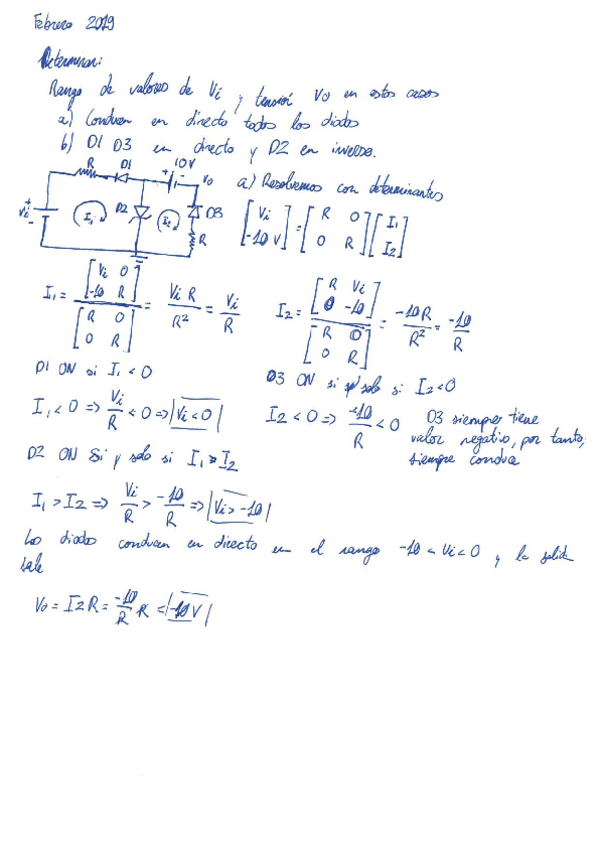 Febrero 2019
Determinar:
Rango de valores de Vi y tensión Vo en estos casos
a) Conducen en directo todos los diodos
b) D1 D3 en directo y D2 en inverso.
R D1 10V
+ - Vo
Vi + I1 D2 I2 D3
R
a) Resolvemos con determinantes
[Vi -10 V] = [R 0 0 R] [I1 I2]
I1 = [Vi 0 -10 R] / [R 0 0 R] = Vi R / R² = Vi / R
I2 = [R Vi 0 -10] / [R 0 0 R] = -10R / R² = -10 / R
D1 ON si I1 < 0
D3 ON si y solo si I2 < 0
I1 < 0 => Vi / R < 0 => |Vi < 0|
I2 < 0 => -10 / R < 0 D3 siempre tiene
valor negativo, por tanto,
siempre conduce
D2 ON Si y solo si I1 > I2
I1 > I2 => Vi / R > -10 / R => |Vi > -10|
Los diodos conducen en directo en el rango -10 < Vi < 0 y la salida
sale
Vo = I2 R = -10 / R R = |-10V|